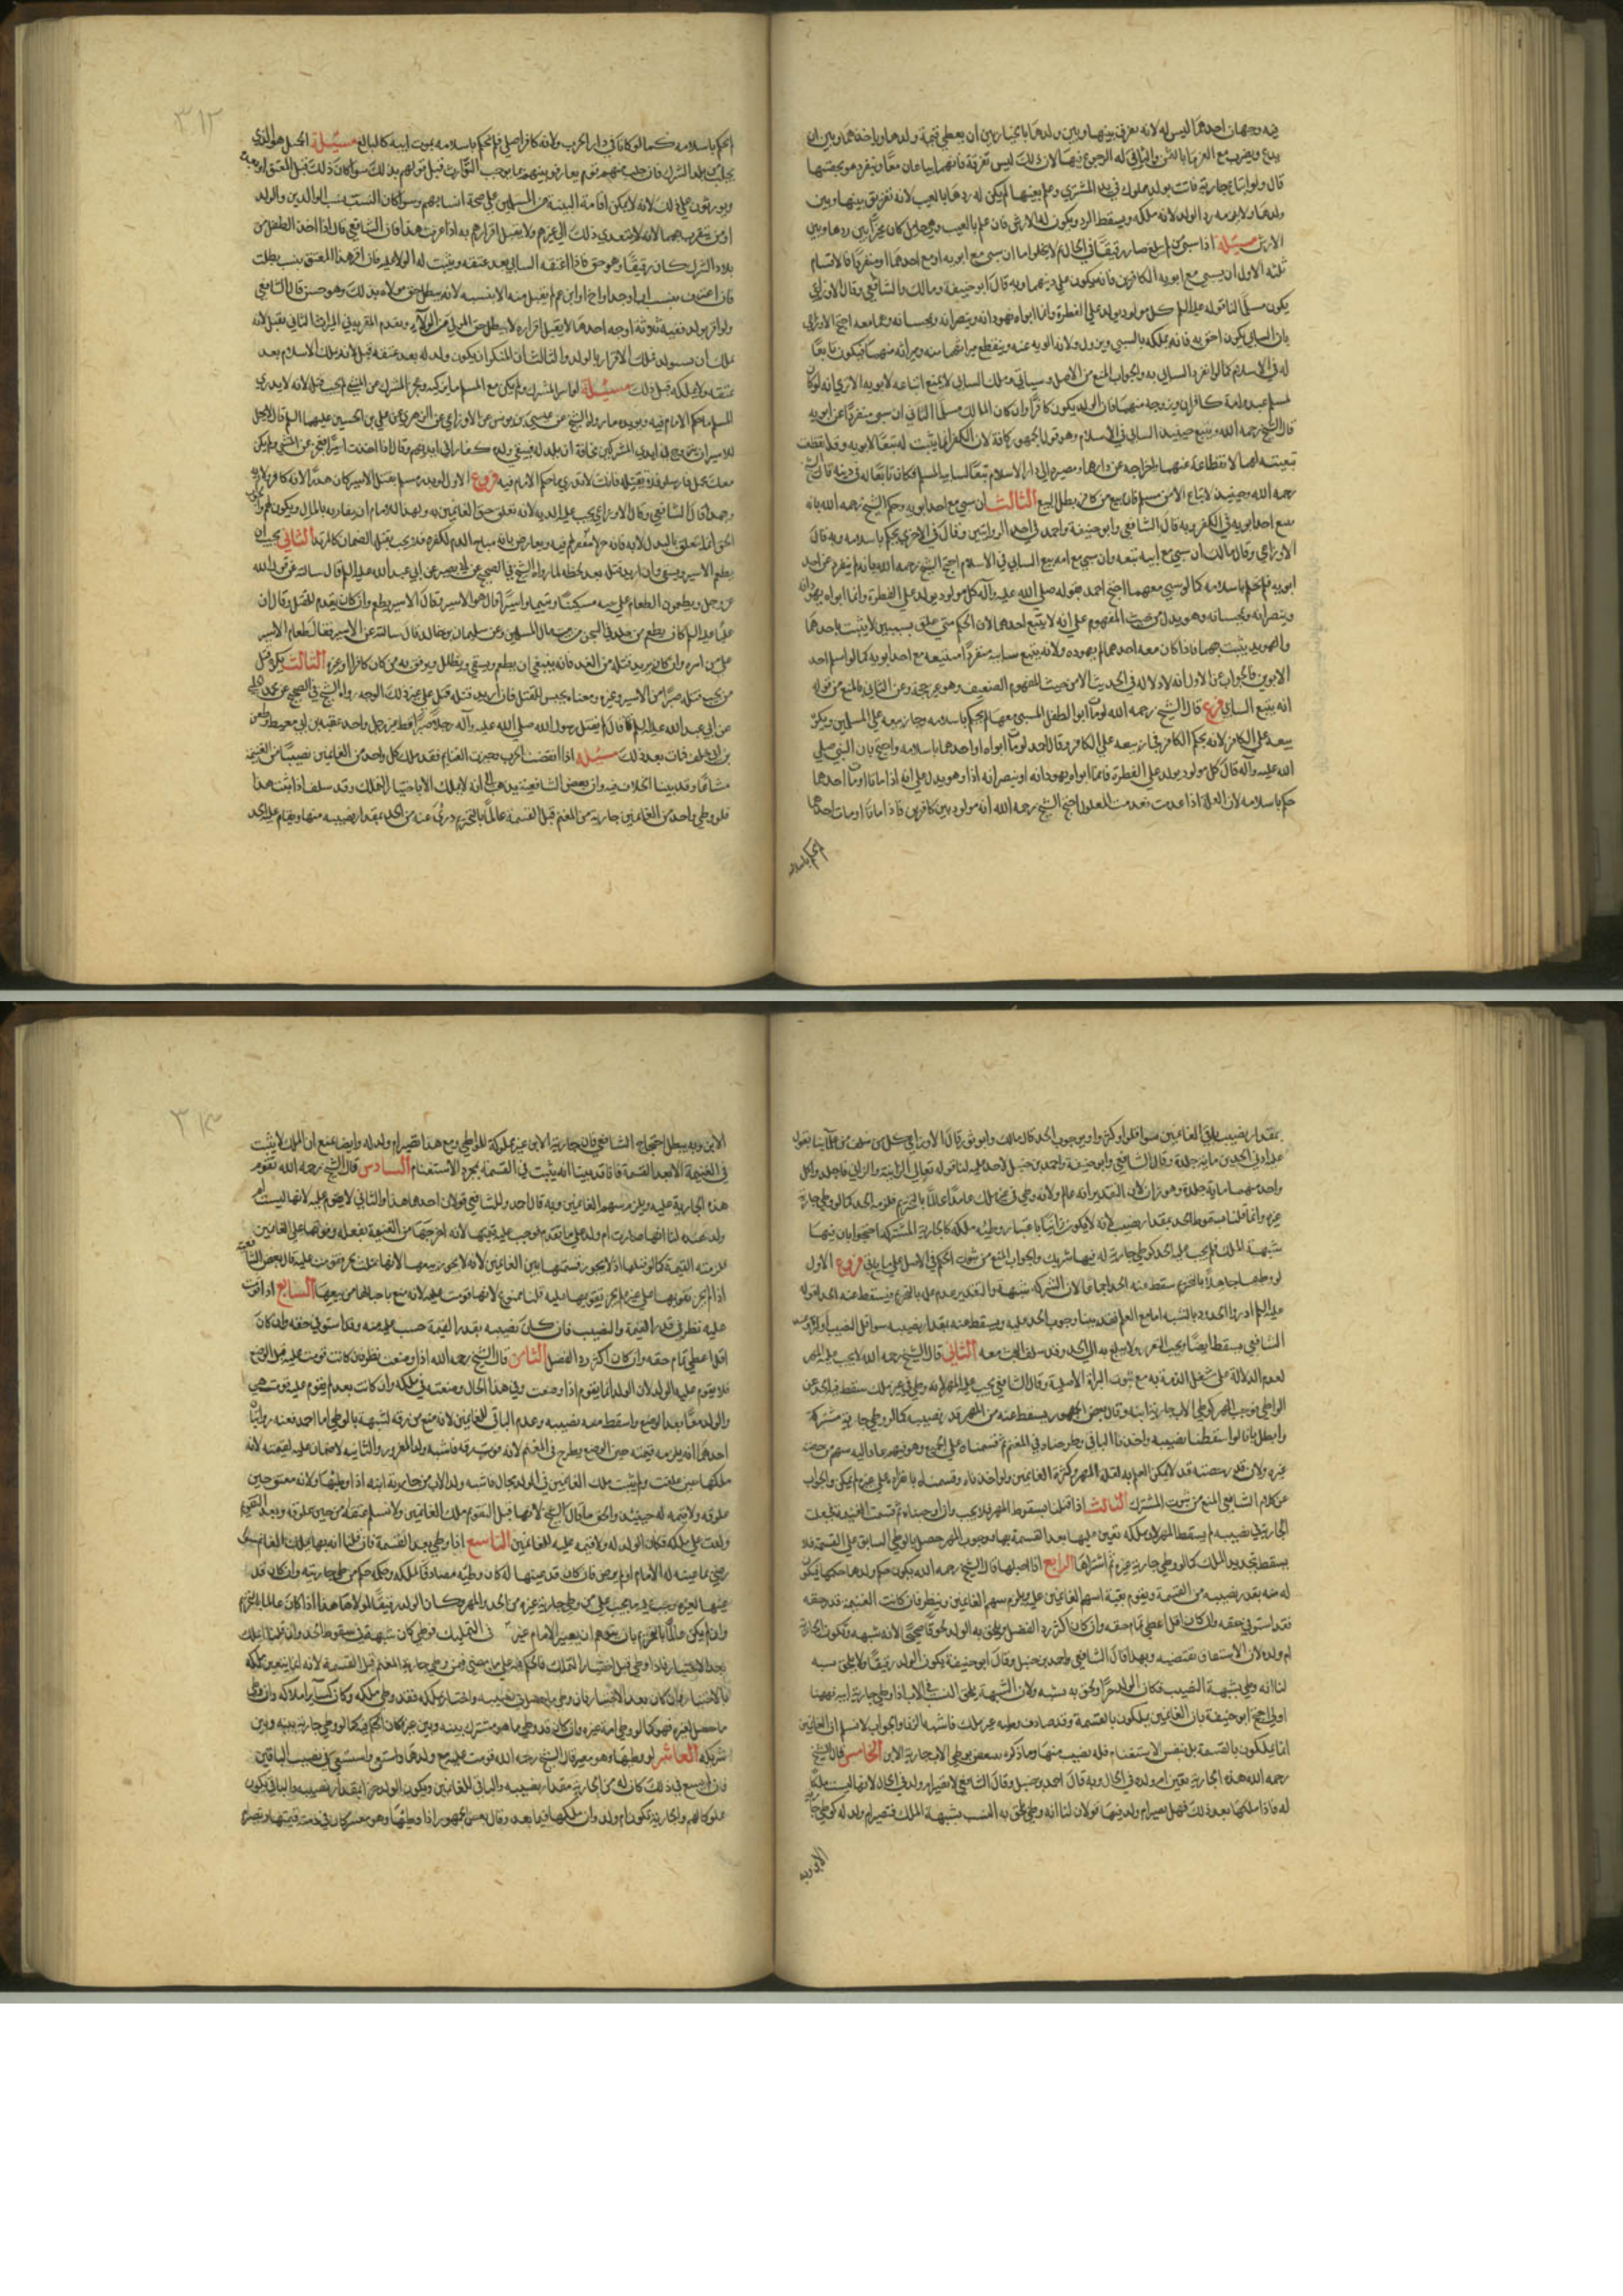 فيه وجهان احدهما ليس له لانه يفرق بينهما وبين ولدها بالخيار بين ان يعطي قيمة ولدها وياخذهما وبين ان
يدع ويضرب مع الغرماء بالثمن والثاني له الرجوع فيها لان ذلك ليس تفرقة فانهما يباعان معا وينفرد هو بحصتها
قال ولو ابتاع جارية فاتت بولد مملوك في يد المشتري وعلم بعيبها لم يكن له ردها بالعيب لانه تفريق بينها وبين
ولدها ولا يلزمه رد الولد لانه ملكه ويسقط الرد ويكون له الارش فان علم بالعيب وهي حامل كان مخيرا بين ردها وبين
الارش مسئلة اذا سبي من لم يبلغ صار رقيقا في الحال ثم لا يخلوا ما ان سبي مع ابويه او مع احدهما او منفردا فالاقسام
ثلثه الاول ان يسبي مع ابويه الكافرين فانه يكون على دينهما وبه قال ابو حنيفة ومالك والشافعي وقال الاوزاعي
يكون مسلما لنا قوله عليه السلم كل مولود يولد على الفطرة وانما ابواه يهودانه وينصرانه ويمجسانه وهما معه احتج الاوزاعي
بان السابي يكون احق به فانه يملكه بالسبي ويزول ولائه لابويه عنه وينقطع ميراثهما منه وميراثه منهما فيكون تابعا
له في الاسلام كما لو انفرد السابي به والجواب المنع من الاصل وسياتي وملك السابي لا يمنع اتباعه لابويه الا ترى انه لو كان
لمسلم عبد وامة كافران وزوجه منها فان الولد يكون كافرا وان كان المالك مسلما الثاني ان سبي منفردا عن ابويه
قال الشيخ رحمه الله ويتبع حينئذ السابي في الاسلام وهو قول الجمهور كافة لان الكفر انما يثبت له تبعا لابويه وقد انقطعت
تبعيته لهما لانقطاعه عنهما واخراجه عن دارهما ومصيره الى دار الاسلام تبعا لسابيه المسلم فكان تابعا له في دينه قال الشيخ
رحمه الله وحينئذ لا يباع الا من مسلم فان بيع من كافر بطل البيع الثالث ان سبي مع احد ابويه وحكم الشيخ رحمه الله بانه
يتبع احد ابويه في الكفر وبه قال الشافعي وابو حنيفة واحمد في احدى الروايتين وقال في الاخرى يحكم باسلامه وبه قال
الاوزاعي وقال مالك ان سبي مع ابيه تبعه وان سبي مع امه تبع السابي في الاسلام احتج الشيخ رحمه الله بانه لم ينفرد عن احد
ابويه فلم يحكم باسلامه كما لو سبي معهما احتج احمد بقوله صلى الله عليه وآله كل مولود يولد على الفطرة وانما ابواه يهودانه
وينصرانه ويمجسانه وهو يدل من حيث المفهوم على انه لا يتبع احدهما لان الحكم متى علق بسببين لا يثبت باحدهما
الابوين فالجواب عن الاول انه لا دلالة له في الحديث الا من حيث المفهوم الضعيف وهو غير حجة وعن الثاني بالمنع من قوله
انه يتبع السابي فرع قال الشيخ رحمه الله لو مات ابوا الطفل المسبي معهما لم يحكم باسلامه وجاز بيعه على المسلمين ويكره
بيعه على الكافر لانه بحكم الكافر فجاز بيعه على الكافر وقال احمد لو مات ابواه او احدهما باسلامه واحتج بان النبي صلى
الله عليه وآله قال كل مولود يولد على الفطرة فانما ابواه يهودانه او ينصرانه اذا وهو يدل على انه اذا ماتا او مات احدهما
حكم باسلامه لان العلة اذا عدمت فعدمت المعلول احتج الشيخ رحمه الله انه مولود بين كافرين فاذا ماتا او مات احدهما
لم يحكم باسلامه
٣١٢
لم يحكم باسلامه كما لو كانا في دار الحرب ولانه كافر اصلي فلم يحكم باسلامه بموت ابيه كالبالغ مسئلة الحميل هو الذي
يجلب من بلد الشرك فان جلب منهم قوم تعارفوا بينهم بما يوجب التوارث قبل قولهم بذلك سواء كان ذلك قبل العتق او بعده
ويورثون على ذلك لانه لا يمكن اقامة البينة من المسلمين على صحة انسابهم وسواء كان النسب نسب الوالدين والولد
او من يتقرب بهما الا انه لا يتعدى ذلك الى غيرهم ولا يقبل اقرارهم به اذا عرفت هذا فان الشافعي قال اذا اخذ الطفل من
بلاد الشرك كان رقيقا وهو حق فاذا اعتقه السابي بعد عتقه ويثبت له الولاء عليه فان اقر هذا المعتق بنسب نظرت
فان اعترف بنسب اب او جد او اخ او ابن عم لم يقبل منه الا ببينة لانه يبطل حق مولاه بذلك وهو حسن قال الشافعي
ولو اقر بولد ففيه ثلاثة اوجه احدها لا يقبل اقراره لا يبطل حق المولى من الولاء ويقدم المقر به في الميراث الثاني يقبل لانه
يملك ان يستولد فملك الاقرار بالولد والثالث ان المنكر ان يكون ولد له بعد عتقه قبل لانه يملك الاستيلاد بعد
عتقه ولا يملكه قبل ذلك مسئلة لو اسر المشرك ولم يكن مع المسلم ما يركبه وعجز المشرك من المشي لم يجب قتله لانه لا يدري
للمسلم ما حكم الامام فيه ويؤيده ما رواه الشيخ عن عيسى بن يونس عن الاوزاعي عن الزهري عن علي بن الحسين عليهما السلم قال لا يحل
معك محمل فارسله ولا تقتله فانك لا تدري ما حكم الامام فيه فروع الاول لو بدر مسلم بقتل الاسير كان هدرا لانه كافر لا امان له
وبه قال الشافعي وقال الاوزاعي يجب عليه الدية لانه تعلق حق الغانمين به ولهذا للامام ان يفاديه بالمال ويكون لهم والجواب
الحق انما يتعلق بالبدل لا به فانه حر لا مقوم فيه ويعارض بانه مباح الدم لكفره فلا يجب بقتله الضمان كالمرتد الثاني يجب ان
يطعم الاسير ويسقى وان اريد قتله بعد لحظة لما رواه الشيخ في الصحيح عن ابي بصير عن ابي عبد الله عليه السلم قال سالته عن قول الله
عز وجل ويطعمون الطعام على حبه مسكينا ويتيما واسيرا قال هو الاسير وقال الاسير يطعم وان كان يقدم للقتل وقال ان
عليا عليه السلم كان يطعم من خلد في السجن من بيت مال المسلمين وعن سليمان بن خالد قال سالته عن الاسير فقال طعام الاسير
على من اسره وان كان يريد قتله من الغد فانه ينبغي ان يطعم ويسقى ويظلل ويرفق به من كان كافرا او غيره الثالث يكره قتل
من يجب قتله صبرا من الاسير وغيره ومعناه يحبس للقتل فان اريد قتله قتل على غير ذلك الوجه رواه الشيخ في الصحيح عن الحلبي
عن ابي عبد الله عليه السلم قال لم يقتل رسول الله صلى الله عليه وآله رجلا صبرا قط غير رجل واحد عقبة بن ابي معيط وطعن
بن ابي خلف فمات بعد ذلك مسئلة اذا انقضت الحرب وحيزت الغنايم فقد ملك كل واحد من الغانمين نصيبا من الغنيمة
مشاعا وقد بينا الخلاف فيه وان بعض الشافعية ذهب الى انه لا يملك الا باختيار التملك وقد سلف اذا ثبت هذا
فلو وطي واحد من الغانمين جارية من المغنم قبل القسمة عالما بالتحريم درئ عنه من الحد بقدر نصيبه منها ويقام عليه الحد
بمقدار نصيب باقي الغانمين سواء قلوا او كثروا وبوجوب الحد قال مالك وابو ثور قال الاوزاعي كل من سلف من علمائنا يقول
عليه ادنى الحدين ماية جلدة وقال الشافعي وابو حنيفة واحمد بن حنبل لا حد عليه لنا قوله تعالى الزانية والزاني فاجلدوا كل
واحد منهما ماية جلدة وهو زان لان التقدير انه عالم ولانه وطي في غير ملك عامدا عالما بالتحريم فلزمه الحد كما لو وطي جارية
غيره وانما قلنا بسقوط الحد بمقدار نصيبه لانه لا يكون زانيا باعتبار وطيه ملكه كالجارية المشتركة احتجوا بان فيها
شبهة الملك فلم يجب عليه الحد كوطي جارية له فيها شريك والجواب المنع من ثبوت الحكم في الاصل على ما ياتي فروع الاول
لو وطيها جاهلا بالتحريم سقط عنه الحد اجماعا لان الشركة شبهة والتقدير عدم علمه بالتحريم فيسقط عنه الحد لقوله
عليه السلم ادروا الحدود بالشبه اما مع العلم فقد بينا وجوب الحد عليه ويسقط عنه بقدر نصيبه سواء قل النصيب او كثر وعند
الشافعي يسقط ايضا ويجب التعزير ولا يبلغ به الحد وقد سلف البحث معه الثاني قال الشيخ رحمه الله لا يجب عليه المهر
لعدم الدلالة على شغل الذمة به مع ثبوت البراة الاصلية وقال الشافعي يجب عليه المهر لانه وطي في غير ملك سقط فيه الحد عن
الواطي فوجب المهر كوطي الاب جارية ابنه وقال بعض الجمهور يسقط عنه من المهر قدر نصيبه كما لو وطي جارية مشتركة
وابطل بانا لو اسقطنا نصيبه واخذنا الباقي وطرحناه في المغنم ثم قسمناه على الجميع وهو فيهم عاد اليه سهم من حصة
غيره ولان قدر حصته قد لا يمكن العلم به لقلة المهر وكثرة الغانمين ولو اخذناه وقسمناه بانفراده على غيره لم يمكن والجواب
عن كلام الشافعي المنع من ثبوت المشترك الثالث اذا قلنا بسقوط المهر فلا بحث وان اوجبناه ثم قسمت الغنيمة فحصلت
الجارية في نصيبه لم يسقط المهر لان ملكه تعين عليها بعد القسمة بها ووجوب المهر حصل بالوطي السابق على القسمة فلا
يسقط بتجدد الملك كما لو وطي جارية غيره ثم اشتراها الرابع اذا احبلها قال الشيخ رحمه الله يكون حكم ولدها حكمها فيكون
له منه بقدر نصيبه من القسمة ويقوم بقية اسهم الغانمين عليه ويلزم سهم الغانمين وينظر فان كانت الغنيمة قدر حقه
فقد استوفى حقه وان كان اقل اعطي تمام حقه وان كان اكثر رد الفضل ويلحق به الولد لحوقا صحيحا لانه شبهة وتكون الجارية
ام ولده لان الاستحقاق يقتضيه وبهذا قال الشافعي واحمد بن حنبل وقال ابو حنيفة يكون الولد رقيقا ولا يلحق نسبه
لنا انه وطي بشبهة النصيب فكان الولد حرا ولحق به نسبه ولان الشبهة يلحق النسب في الاب اذا وطي جارية ابنه فههنا
اولى احتج ابو حنيفة بان الغانمين يملكون بالقسمة وقد صادف وطيه غير ملك فاشبه الزنا والجواب لا نسلم ان الغانمين
انما يملكون بالقسمة بل بنفس الاستغنام فله نصيب منها وما ذكره ينتقض بوطي الاب جارية الابن الخامس قال الشيخ
رحمه الله هذه الجارية تعين ام ولده في الحال وبه قال احمد بن حنبل وقال الشافعي لا تصير ام ولد في الحال لانها ليست ملكا
له فاذا ملكها بعد ذلك فهل يصير ام ولد فيها قولان لنا انه وطي يلحق به النسب بشبهة الملك فتصير ام ولد له كوطي جارية
الابن وبه
٣١٣
الابن وبه يبطل احتجاج الشافعي فان جارية الابن غير مملوكة للواطي ومع هذا تصير ام ولد له وايضا نمنع ان الملك لا يثبت
في الغنيمة الا بعد القسمة فانا قد بينا انه يثبت في القسمة بمجرد الاستغنام السادس قال الشيخ رحمه الله تقوم
هذه الجارية عليه ويلزمه سهم الغانمين وبه قال احمد وللشافعي قولان احدهما هذا والثاني لا يقوم عليه لانها ليست ام
ولد عنده لنا انها صارت ام ولد على ما تقدم فوجب عليه قيمتها لانه اخرجها من الغنيمة بفعله وفوتها على الغانمين
فلزمته القيمة كما لو قتلها اذا لا يجوز قسمتها بين الغانمين لانه لا يجوز بيعها لانها ملك حر فقومت عليه قال بعض الشافعية
اذا لم يجز تقويمها على غيره لم يجز تقويمها عليه قلنا ممنوع لانها قومت عليه لانه منع باحبالها من بيعها السابع اذا قومت
عليه نظر في قدر القيمة والنصيب فان كان نصيبه بقدر القيمة حسب عليه منه وقد استوفى حقه وان كان
اقل اعطي تمام حقه وان كان اكثر رد الفضل الثامن قال الشيخ رحمه الله اذا وضعت نظر فان كانت قومت عليه قبل الوضع
فلا يقوم عليه الولد لان الولد انما يقوم اذا وضعت وفي هذا الحال وضعته في ملكه وان كانت بعد لم يقوم عليه قومت هي
والولد معا بعد الوضع واسقط منه نصيبه وغرم الباقي للغانمين لانه منع من رقه لشبهة بالوطي اما احمد فعنه روايتان
احدهما انه يلزمه قيمته حين الوضع يطرح في المغنم لانه فوت رقه فاشبه ولد المغرور والثانية لا ضمان عليه لقيمته لانه
ملكها حين علقت ولم يثبت ملك الغانمين في الولد بحال فاشبه ولد الاب من جارية ابنه اذا وطيها ولانه معتوق حين
علوقه ولا قيمة له حينئذ والحق ما قال الشيخ لانها قبل التقويم ملك الغانمين ولا نسلم عتقه من حين علوقه وبعد التقويم
ولدت على ملكه فكان الولد له ولا قيمة عليه للغانمين التاسع اذا وطي بعد القسمة فان قلنا انه بها يملك الغانم متى
رضي بما عينه له الامام او لم يرض فان كان قد عينها له كان وطيه مصادفا لملكه وحكمه حكم من وطي جاريته وان كان قد
عينها لغيره وجب عليه ما يجب على من وطي جارية غيره من الحد والمهر وكان الولد رقيقا لمولاها هذا اذا كان عالما بالتحريم
بعد الاختيار فاذا وطي قبل اختيار التملك فالحكم فيه على ما مضى فيمن وطي جارية المغنم قبل القسمة لانه انما يتعين ملكه
بالاختيار وان كان بعد الاختيار فان وطي ما حصل في نصيبه واختار تملكه فقد وطي ملكه وكان كساير املاكه وان وطي
ما حصل لغيره فهو كما لو وطي امة غيره وان كان قد وطي ما هو مشترك بينه وبين غيره كان الحكم فيه كما لو وطي جارية بينه وبين
شريكه العاشر لو وطيها وهو معسر قال الشيخ رحمه الله قومت عليه مع ولدها واستسعى في نصيب الباقين
فان لم يسع في ذلك كان له من الجارية مقدار نصيبه والباقي للغانمين ويكون الولد حرا بمقدار نصيبه والباقي يكون
مملوكا لهم والجارية تكون ام ولد وان ملكها فيما بعد وقال بعض الجمهور اذا وطيها وهو معسر كان في ذمته قيمتها وتصير